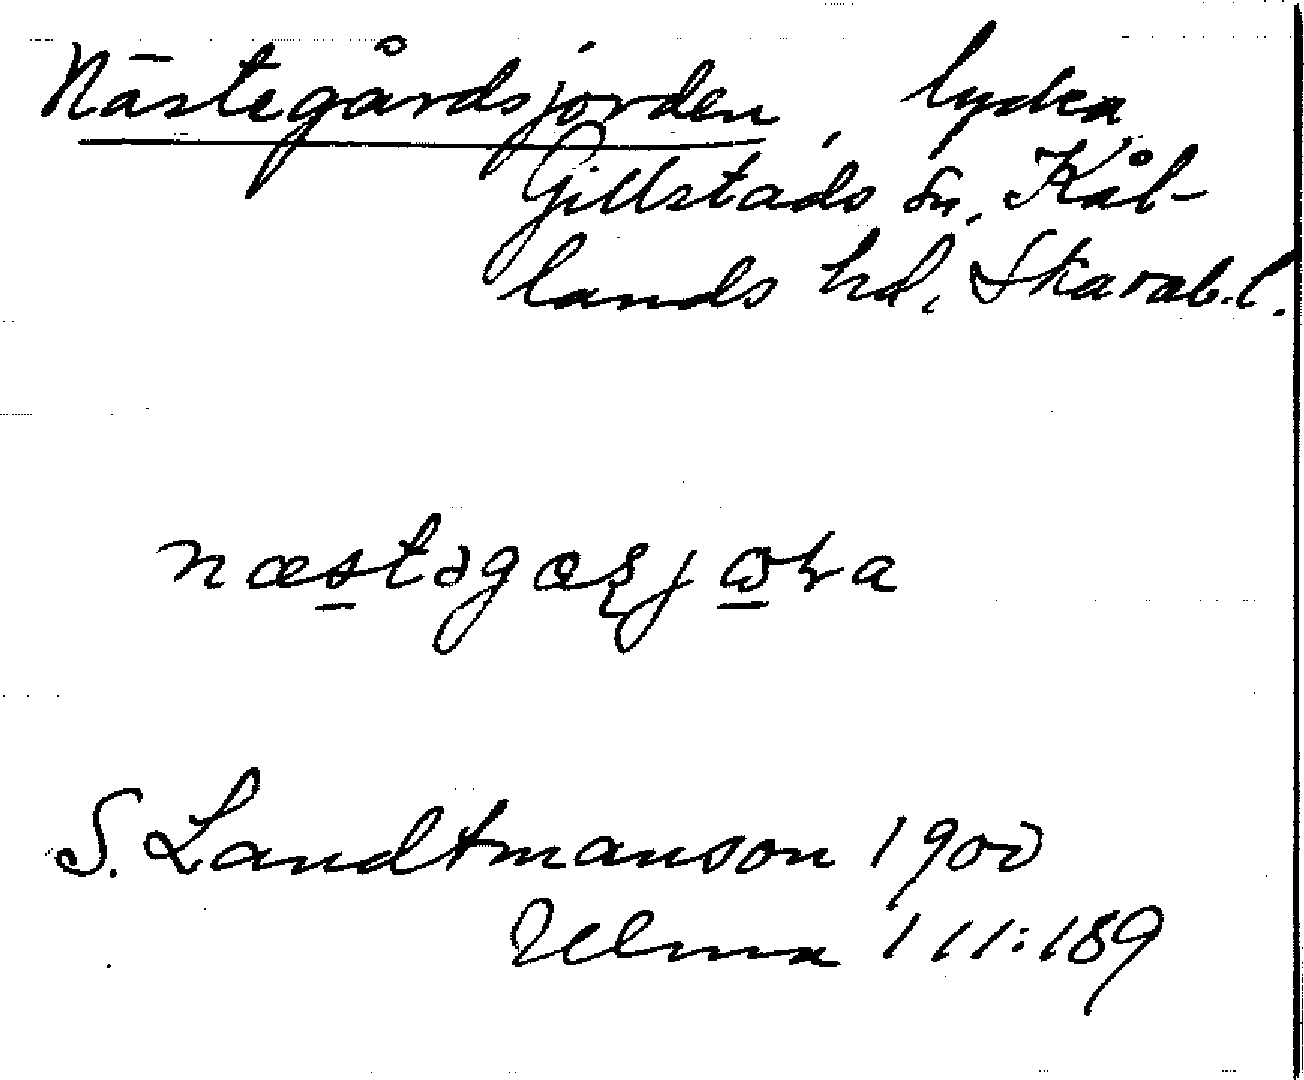 Nästegårdsjorden, lycka
Gillstads sn, Kål-
lands hd, Skarab. l.
næstəgaʂjɷɽa
S. Landtmanson 1900
Ulma 111:189